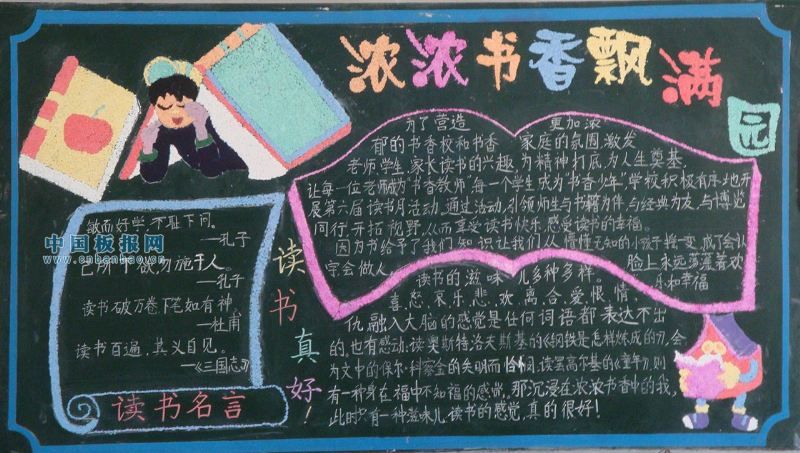 浓浓书香飘满园
敏而好学,不耻下问。
—孔子
己所不欲勿施于人。
—孔子
读书破万卷下笔如有神。
—杜甫
读书百遍,其义自见。
—《三国志》
读书名言
中国板报网
www.cnbanbao.cn
读书真好!
为了营造 更加浓
郁的书香校和书香 家庭的氛围激发
老师,学生,家长读书的兴趣,为精神打底,为人生奠基
让每一位老师成为"书香教师"每一个学生成为"书香少年",学校积极有序地开
展第六届读书月活动,通过活动,引领师生与书籍为伴,与经典为友,与博览
同行,开拓视野,从而享受读书快乐,感受读书的幸福。
因为书给予了我们知识让我们从懵懂无知的小孩子摇一变,成了会认
字会做人 脸上永远荡漾着欢
乐和幸福
读书的滋味儿多种多样。
喜、怒、哀、乐、悲、欢、离、合、爱、恨、情、
仇,融入大脑的感觉是任何词语都表达不出
的。也有感动:读奥斯特洛夫斯基的《钢铁是怎样炼成的》,会
为文中的保尔·柯察金的失明而 读高尔基的《童年》,则
有一种身在福中不知福的感觉。那沉浸在浓浓书香中的我,
此时只有一种滋味儿读书的感觉,真的很好!